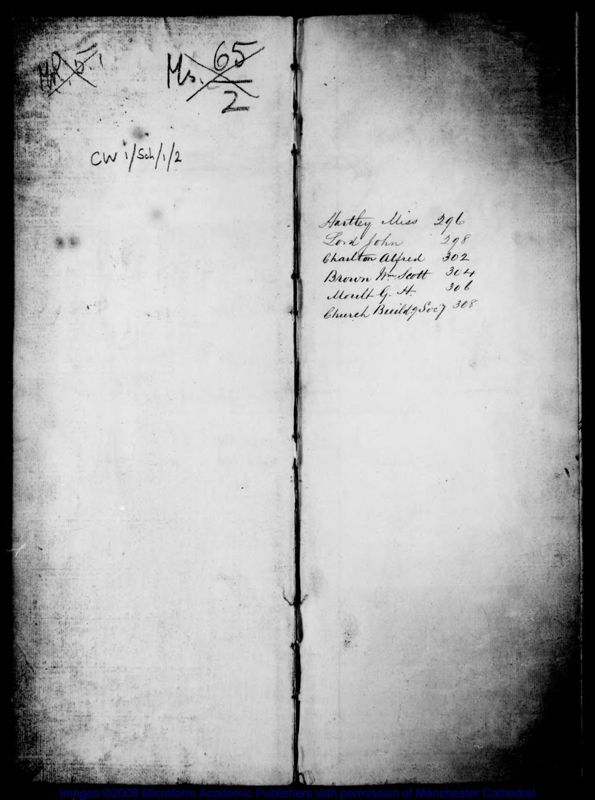 Ms. 65
2
CW 1/Sch/1/2
Hartley Miss 296
Lord John 298
Charlton Alfred 302
Brown Wm Scott 304
Moult G. H. 306
Church Buildg Socy 308
Images ©2006 Microform Academic Publishers with permission of Manchester Cathedral